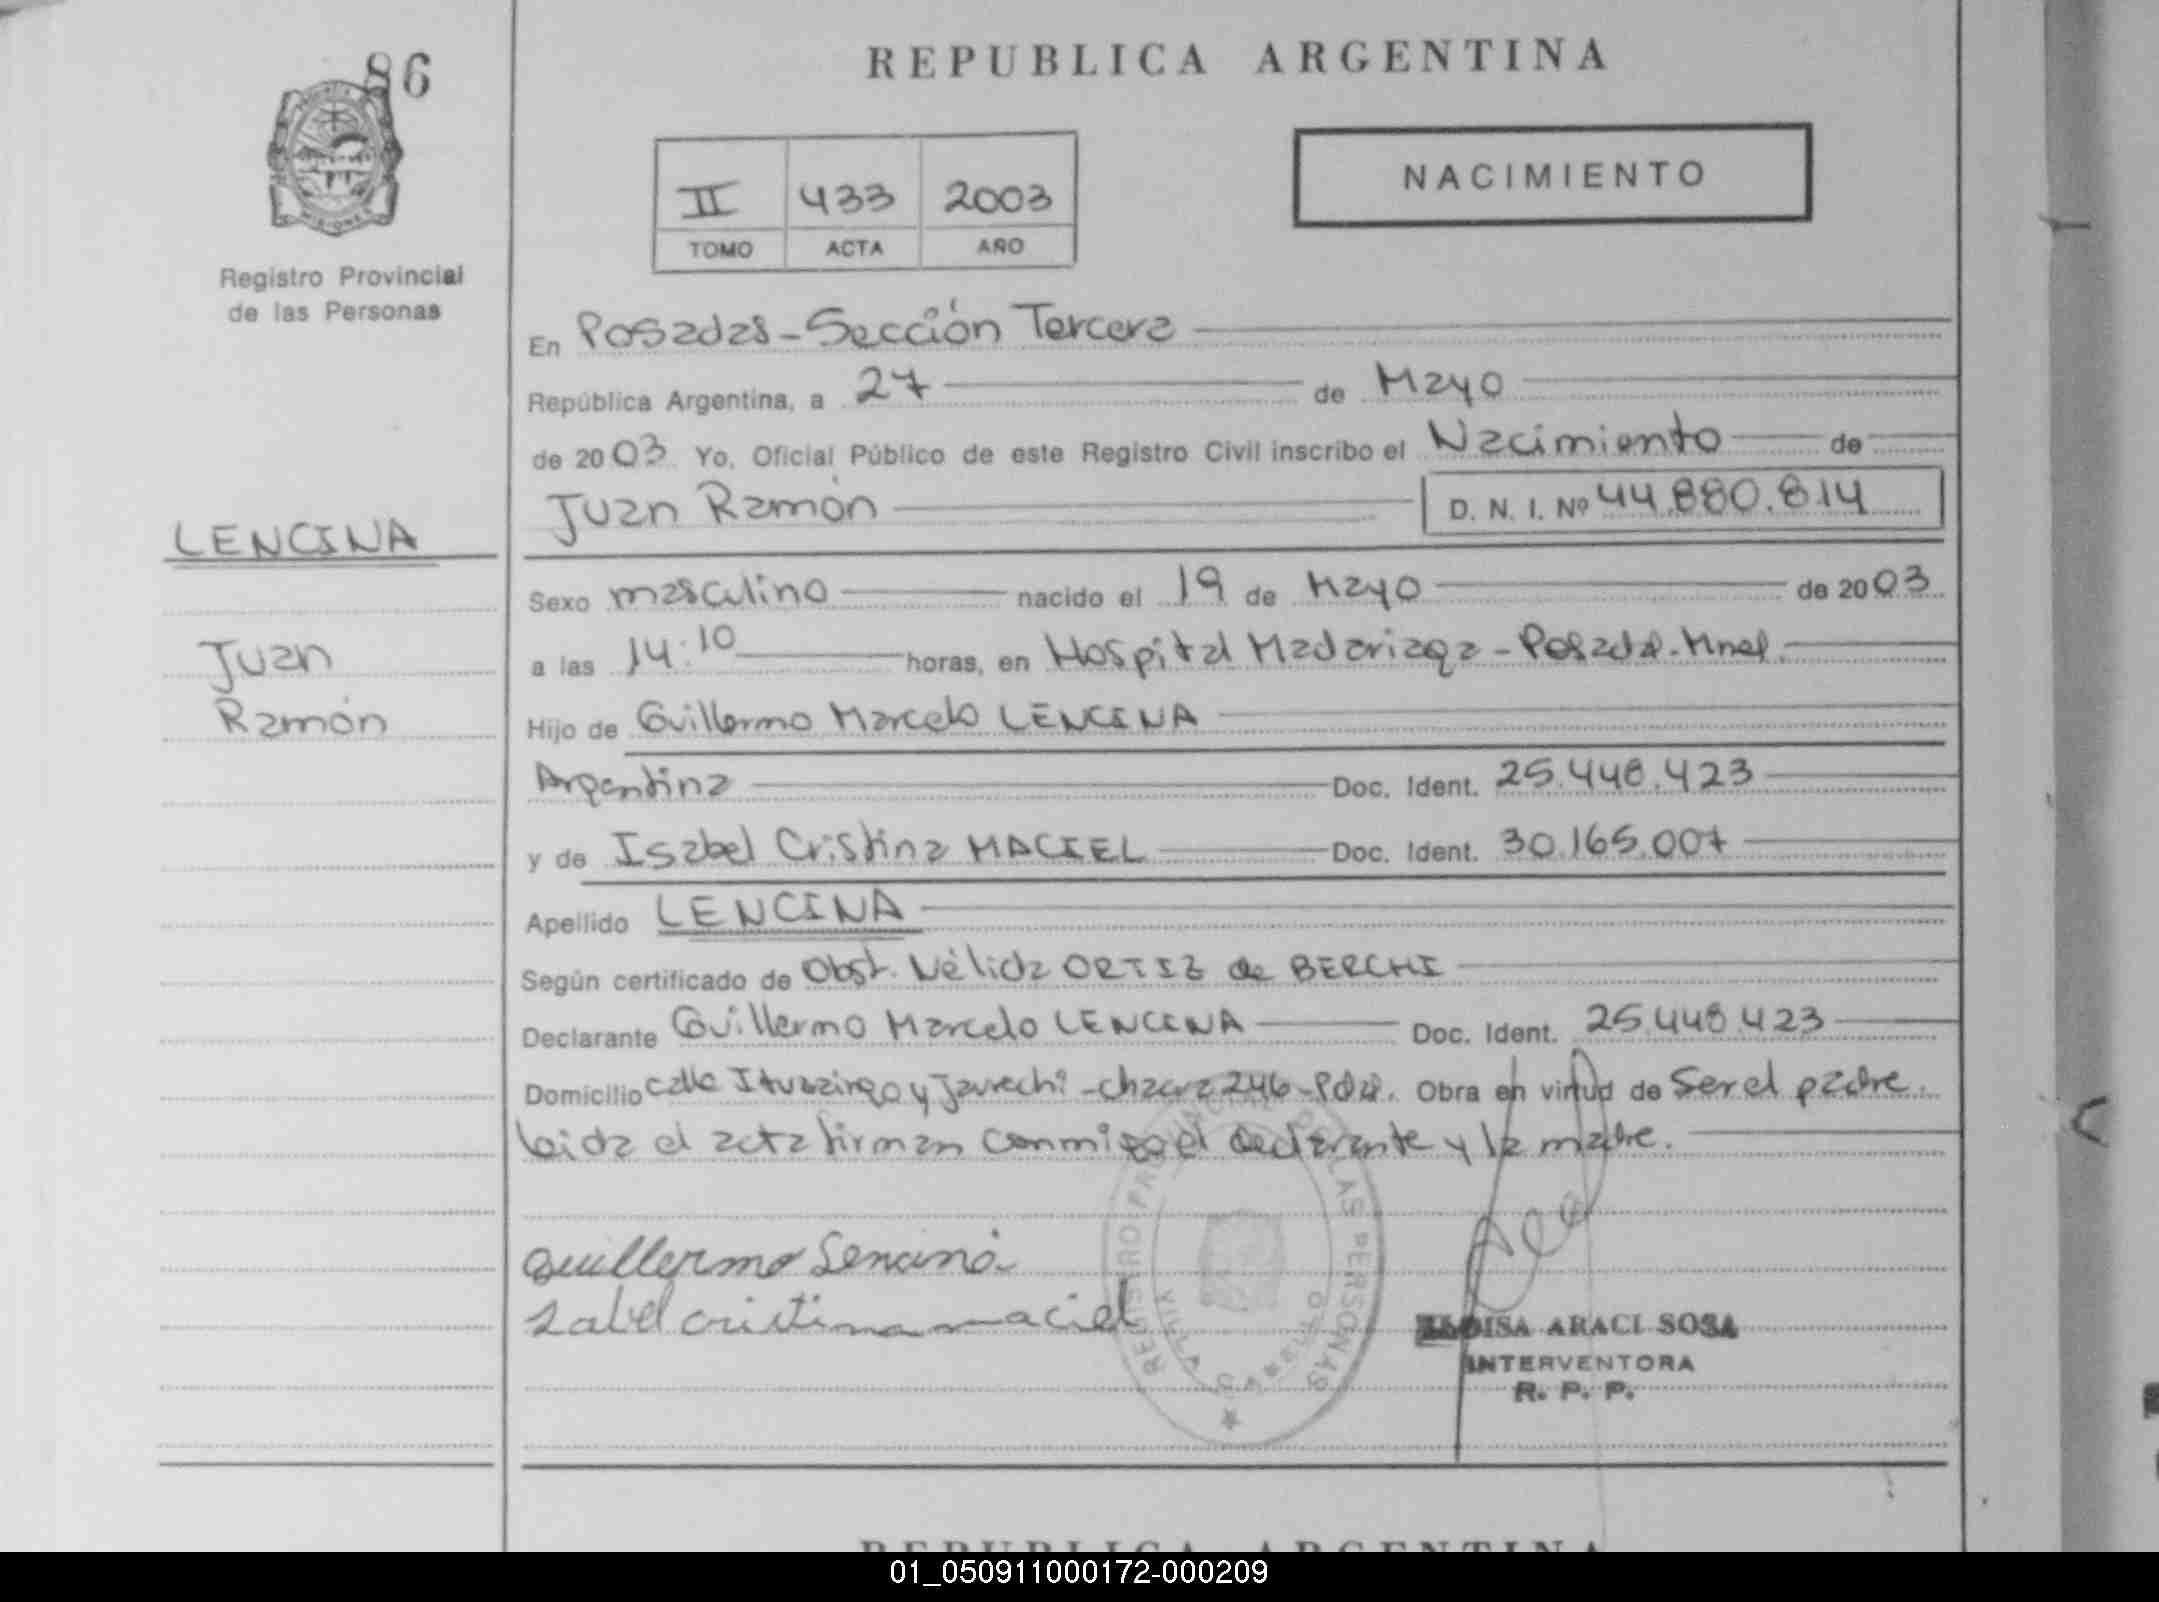 86
REPUBLICA ARGENTINA
II 433 2003
TOMO ACTA AÑO
NACIMIENTO
Registro Provincial
de las Personas
En Posadas - Sección Tercera
República Argentina, a 27 de Mayo
de 2003 Yo, Oficial Público de este Registro Civil inscribo el Nacimiento de
Juan Ramón D. N. I. Nº 44.880.814
LENCINA
Juan
Ramón
Sexo masculino nacido el 19 de Mayo de 2003
a las 14:10 horas, en Hospital Madariaga - Posadas. Mnes.
Hijo de Guillermo Marcelo LENCINA
Argentina Doc. Ident. 25.448.423
y de Isabel Cristina MACIEL Doc. Ident. 30.165.007
Apellido LENCINA
Según certificado de Obst. Nélida ORTIZ de BERCHI
Declarante Guillermo Marcelo LENCINA Doc. Ident. 25.448.423
Domicilio calle Ituzaingo y - chacra 246 - Pdas. Obra en virtud de Ser el padre.
leida el acta firman conmigo el declarante y la madre.
REGISTRO PROVINCIAL DE LAS PERSONAS
Guillermo Lencina
Isabel cristina maciel
ARACI SOSA
INTERVENTORA
R. P. P.
REPUBLICA ARGENTINA
01_050911000172-000209